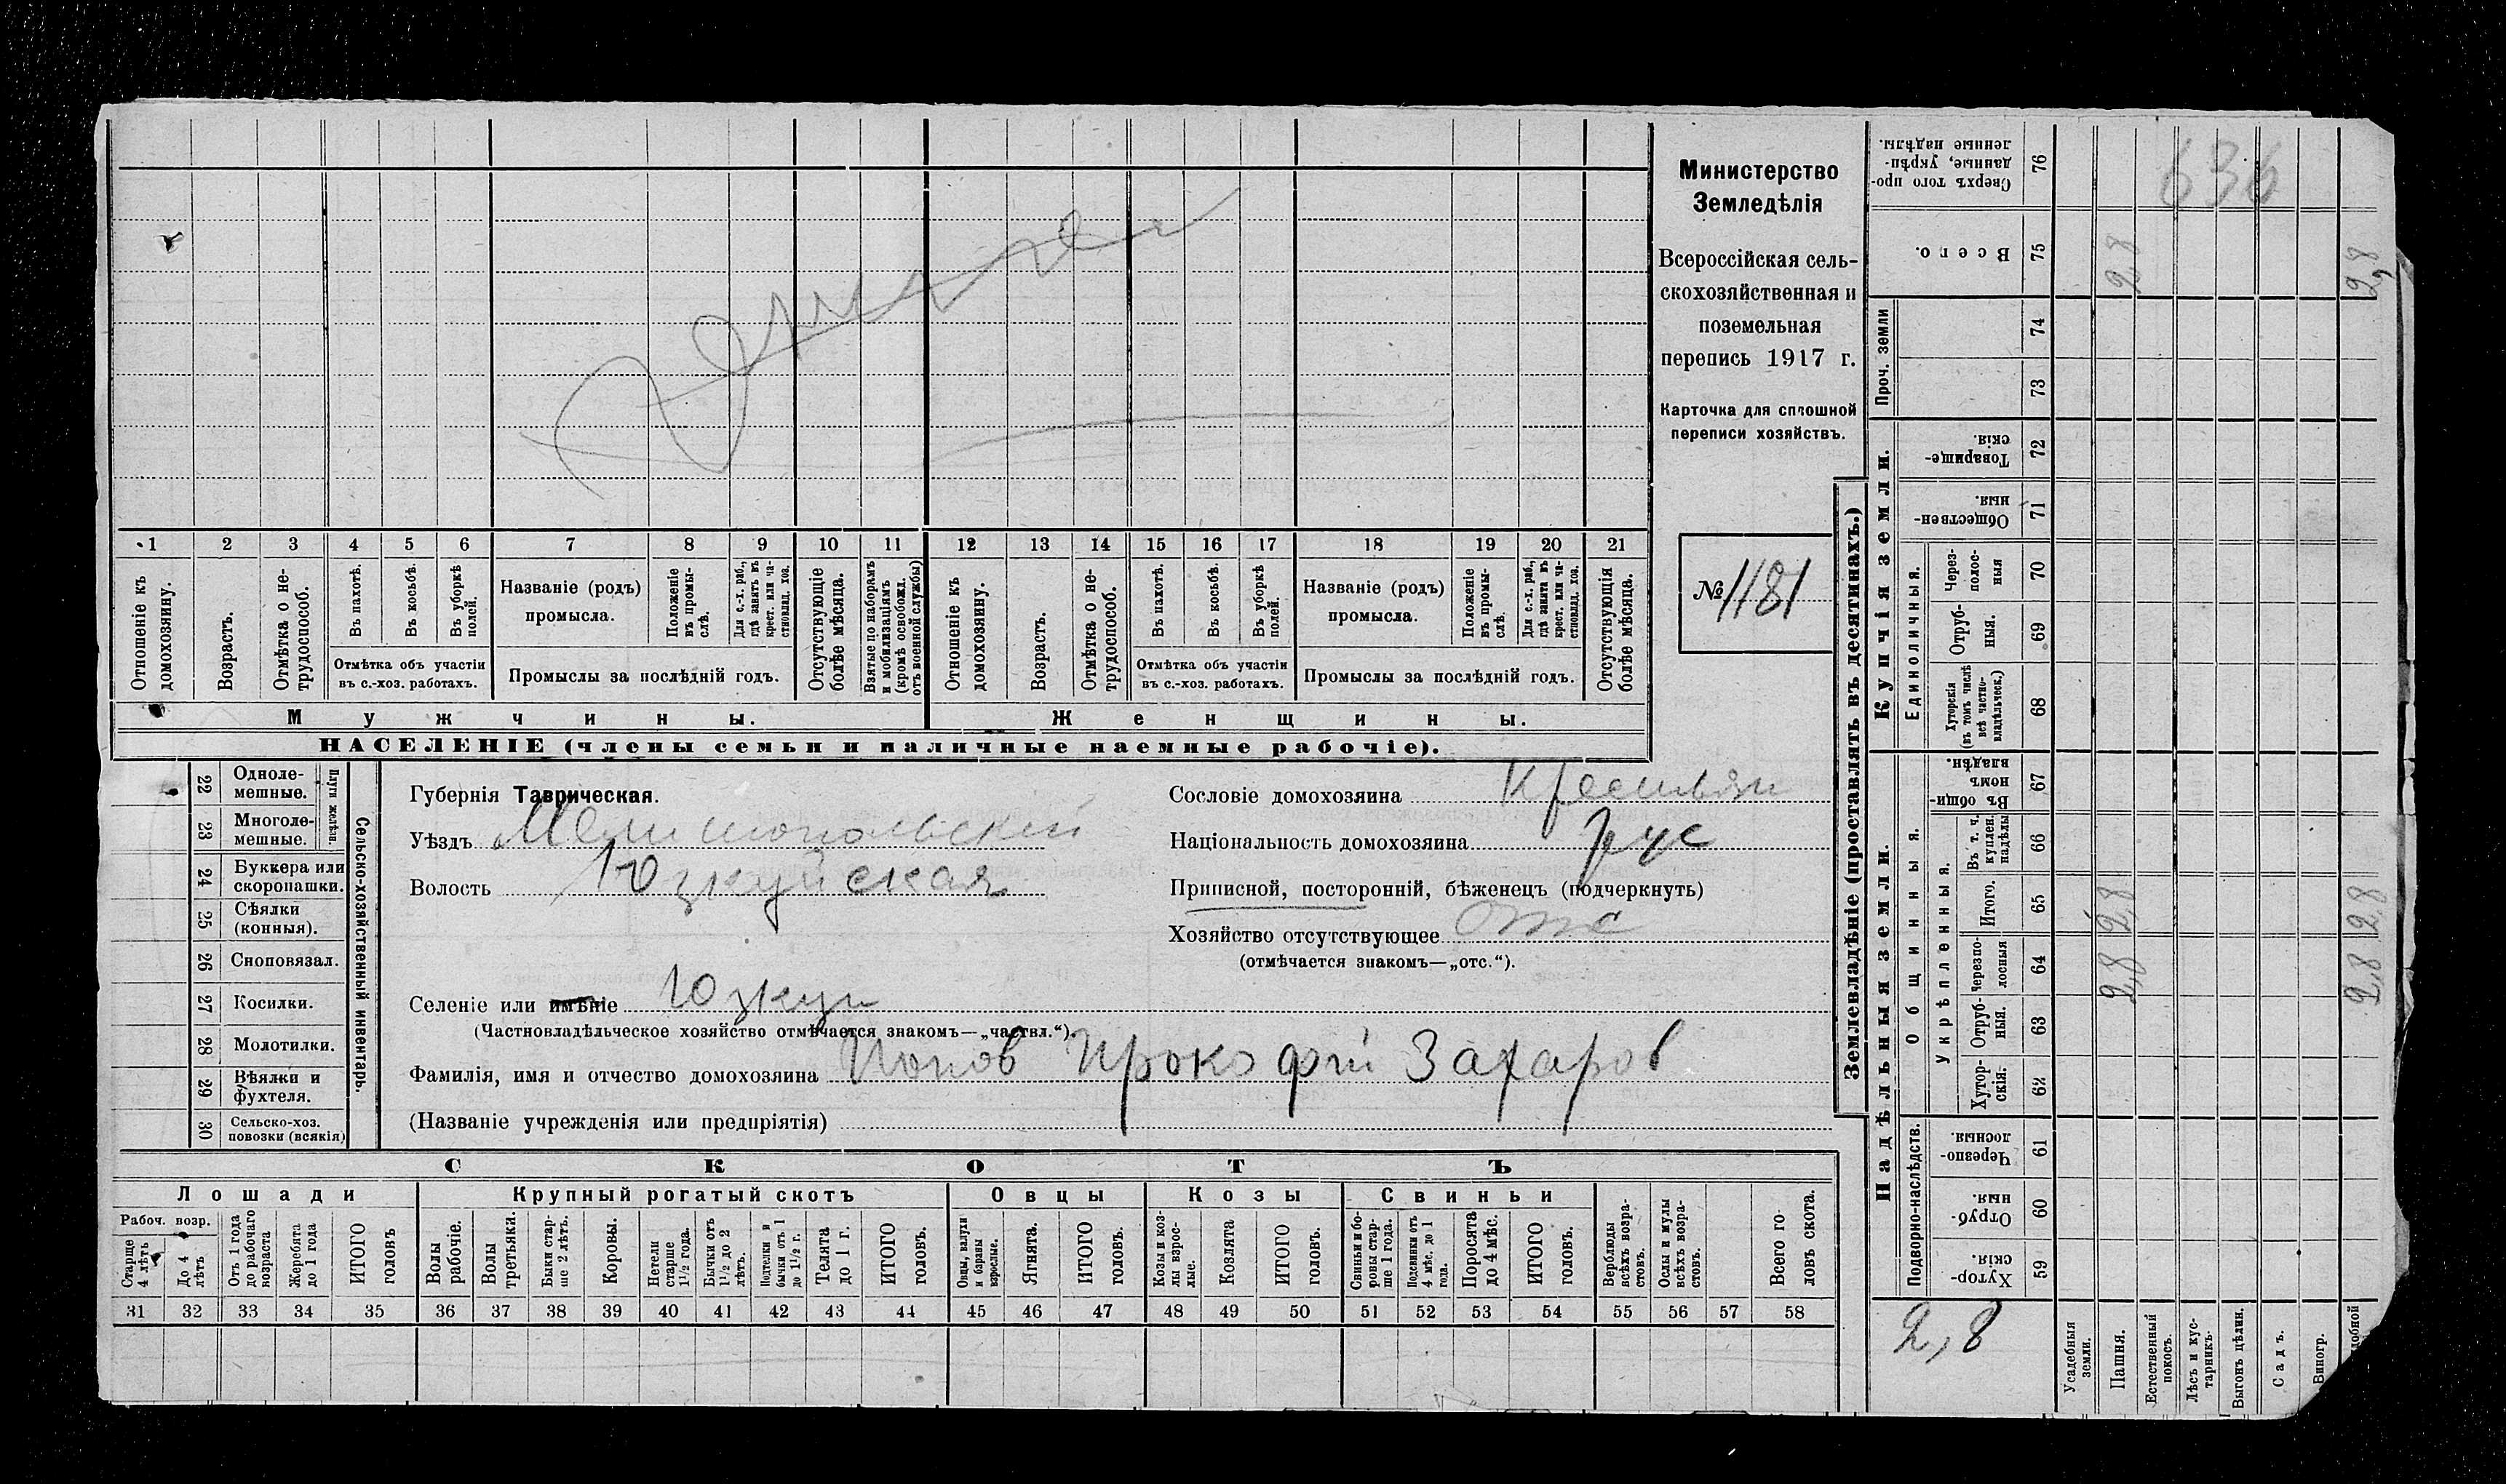 1 2 3 4 5 6 7 8 9 10 11 12 13 14 15 16 17 18 19 20 21
Отношеніе къ домохозяину.
Возрастъ.
Отмѣтка о не-
трудоспособ.
Въ пахотѣ.
Въ косьбѣ.
Въ уборкѣ
полей.
Отмѣтка объ участіи
въ с.-хоз. работахъ.
Названіе (родъ)
промысла.
Положеніе
въ промы-
слѣ.
Для с.-х. раб.,
гдѣ занятъ въ
крест. или ча-
стновлад. хоз.
Промыслы за послѣдній годъ.
Отсутствующіе
болѣе мѣсяца.
Взятые по наборамъ
и мобилизаціямъ
(кромѣ освобожд.
отъ военной службы)
Отношеніе къ
домохозяину.
Возрастъ.
Отмѣтка о не-
трудоспособ.
Въ пахотѣ.
Въ косьбѣ.
Въ уборкѣ
полей.
Отмѣтка объ участіи
въ с.-хоз. работахъ.
Названіе (родъ)
промысла.
Положеніе
въ промы-
слѣ.
Для с.-х. раб.,
гдѣ занята въ
крест. или ча-
стновлад. хоз.
Промыслы за послѣдній годъ.
Отсутствующія
болѣе мѣсяца.
Мужчины.
Женщины.
НАСЕЛЕНІЕ (члены семьи и наличные наемные рабочіе).
Министерство
Земледѣлія
Всероссійская сель-
скохозяйственная и
поземельная
перепись 1917 г.
Карточка для сплошной
переписи хозяйствъ.
№ 1181
22 Одноле-
мешные.
23 Многоле-
мешные.
Плуги желѣзн.
24 Буккера или
скоропашки.
25 Сѣялки
(конныя).
26 Сноповязал.
27 Косилки.
28 Молотилки.
29 Вѣялки и
фухтеля.
30 Сельско-хоз.
повозки (всякія)
Сельско-хозяйственный инвентарь.
Губернія Таврическая.
Уѣздъ Мелитопольский
Волость Юзкуйская
Селеніе или имѣніе Юзкуи
(Частновладѣльческое хозяйство отмѣчается знакомъ—„частвл.“).
Фамилія, имя и отчество домохозяина Попов Прокофій Захаров
(Названіе учрежденія или предпріятія)
Сословіе домохозяина Крестьян
Національность домохозяина рус
Приписной, посторонній, бѣженецъ (подчеркнуть)
Хозяйство отсутствующее отс
(отмѣчается знакомъ—„отс.“).
СКОТЪ
Лошади
Крупный рогатый скотъ
Овцы
Козы
Свиньи
Рабоч. возр.
Старше
4 лѣтъ
До 4
лѣтъ
Отъ 1 года
до рабочаго
возраста
Жеребята
до 1 года
ИТОГО
головъ
Волы
рабочіе.
Волы
третьяки.
Быки стар-
ше 2 лѣтъ.
Коровы.
Нетели
старше
1½ года.
Бычки отъ
1½ до 2
лѣтъ.
Подтелки и
бычки отъ 1
до 1½ г.
Телята
до 1 г.
ИТОГО
головъ.
Овцы, валухи
и бараны
взрослые.
Ягнята.
ИТОГО
головъ.
Козы и коз-
лы взрос-
лые.
Козлята
ИТОГО
головъ.
Свиньи и бо-
ровы стар-
ше 1 года.
Подсвинки отъ
4 мѣс. до 1
года.
Поросята
до 4 мѣс.
ИТОГО
головъ.
Верблюды
всѣхъ возра-
стовъ.
Ослы и мулы
всѣхъ возра-
стовъ.
Всего го-
ловъ скота.
31 32 33 34 35 36 37 38 39 40 41 42 43 44 45 46 47 48 49 50 51 52 53 54 55 56 57 58
Землевладѣніе (проставлять въ десятинахъ.)
Надѣльныя земли.
Купчія земли.
Проч. земли
Подворно-наслѣдств.
Общинныя.
Укрѣпленныя.
Единоличныя.
Хутор-
скія.
59
Отруб-
ныя.
60
Черезпо-
лосныя.
61
Хутор-
скія.
62
Отруб-
ныя.
63
Черезпо-
лосныя
64
Итого.
65
Въ т. ч.
куплен.
надѣлы
66
Въ общи-
номъ
владѣн.
67
Хуторскія
(въ томъ числѣ
всѣ частно-
владѣльческ.)
68
Отруб-
ныя.
69
Через-
полос-
ныя
70
Обществен-
ныя.
71
Товарище-
скія.
72
73
74
Всего.
75
Сверхъ того про-
данные, укрѣп-
ленные надѣлы.
76
636
2,8
Усадебныя
земли.
Пашня. 2,8 2,8 2,8
Естественный
покосъ.
Лѣсъ и кус-
тарникъ.
Выгонъ цѣлин.
Садъ.
Виногр.
добной 2,8 2,8 2,8